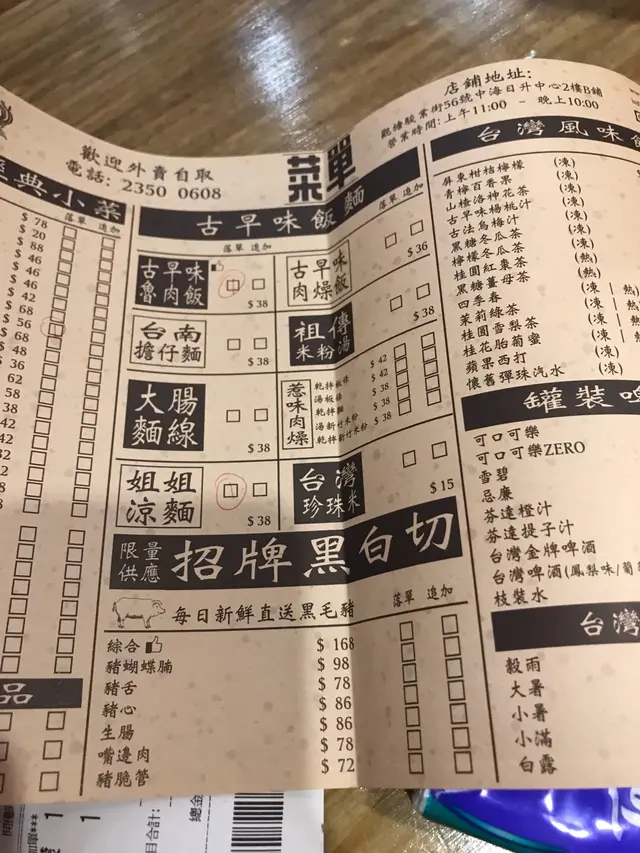 歡迎外賣自取
電話: 2350 0608
菜單
店鋪地址:
觀塘駿業街56號中海日升中心2樓B鋪
營業時間:上午11:00 - 晚上10:00
經典小菜
落單 追加
$ 78
$ 20
$ 88
$ 46
$ 46
$ 42
$ 68
$ 56
$ 68
$ 48
$ 36
古早味飯麵
落單 追加
落單 追加
古早味
魯肉飯
$ 38
古早味
肉燥飯
$ 36
台南
擔仔麵
$ 38
祖傳
米粉湯
$ 38
大腸
麵線
$ 38
惹味肉燥
$ 42
$ 38
$ 38
$ 38
$ 38
姐姐
涼麵
$ 38
台灣
珍珠米
$ 15
限量
供應
招牌黑白切
每日新鮮直送黑毛豬
落單 追加
綜合 $ 168
豬蝴蝶腩 $ 98
豬舌 $ 78
豬心 $ 86
生腸 $ 86
嘴邊肉 $ 78
豬脆管 $ 72
台灣風味
屏東柑桔檸檬 (凍)
青檸百香果 (凍)
山楂洛神花茶 (凍)
古早味楊桃汁 (凍)
古法烏梅汁 (凍)
黑糖冬瓜茶 (凍)
檸檬冬瓜茶 (凍)
桂圓紅棗茶 (熱)
黑糖薑母茶 (熱)
四季春 (凍 | 熱
茉莉綠茶 (凍 | 熱
桂圓雪梨茶 (凍 | 熱
桂花胎菊蜜 (凍 | 熱
蘋果西打 (凍)
懷舊彈珠汽水 (凍)
罐裝啤
可口可樂
可口可樂ZERO
雪碧
忌廉
芬達橙汁
芬達提子汁
台灣金牌啤酒
台灣啤酒(鳳梨味/
枝裝水
台灣
穀雨
大暑
小暑
小滿
白露
品